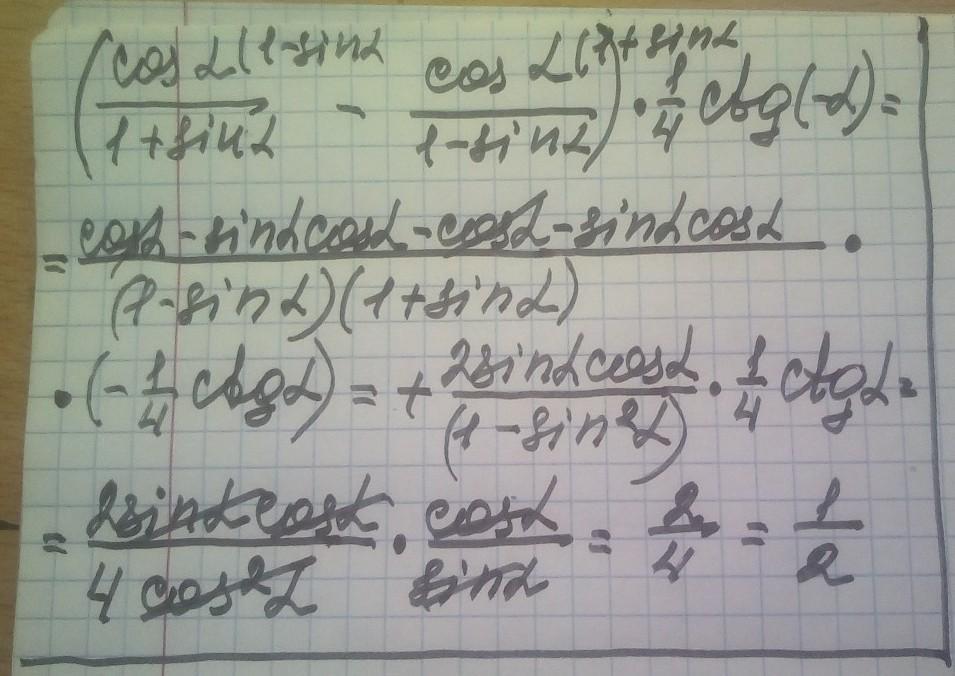 (cos α (1-sinα / 1+sinα - cos α (1+sinα / 1-sinα) · 1/4 ctg(-α) =
= cosα - sinα cosα - cosα - sinα cosα / (1-sinα)(1+sinα) ·
· (-1/4 ctgα) = + 2sinα cosα / (1-sin²α) · 1/4 ctgα =
= 2sinα cosα / 4 cos²α · cosα / sinα = 2/4 = 1/2